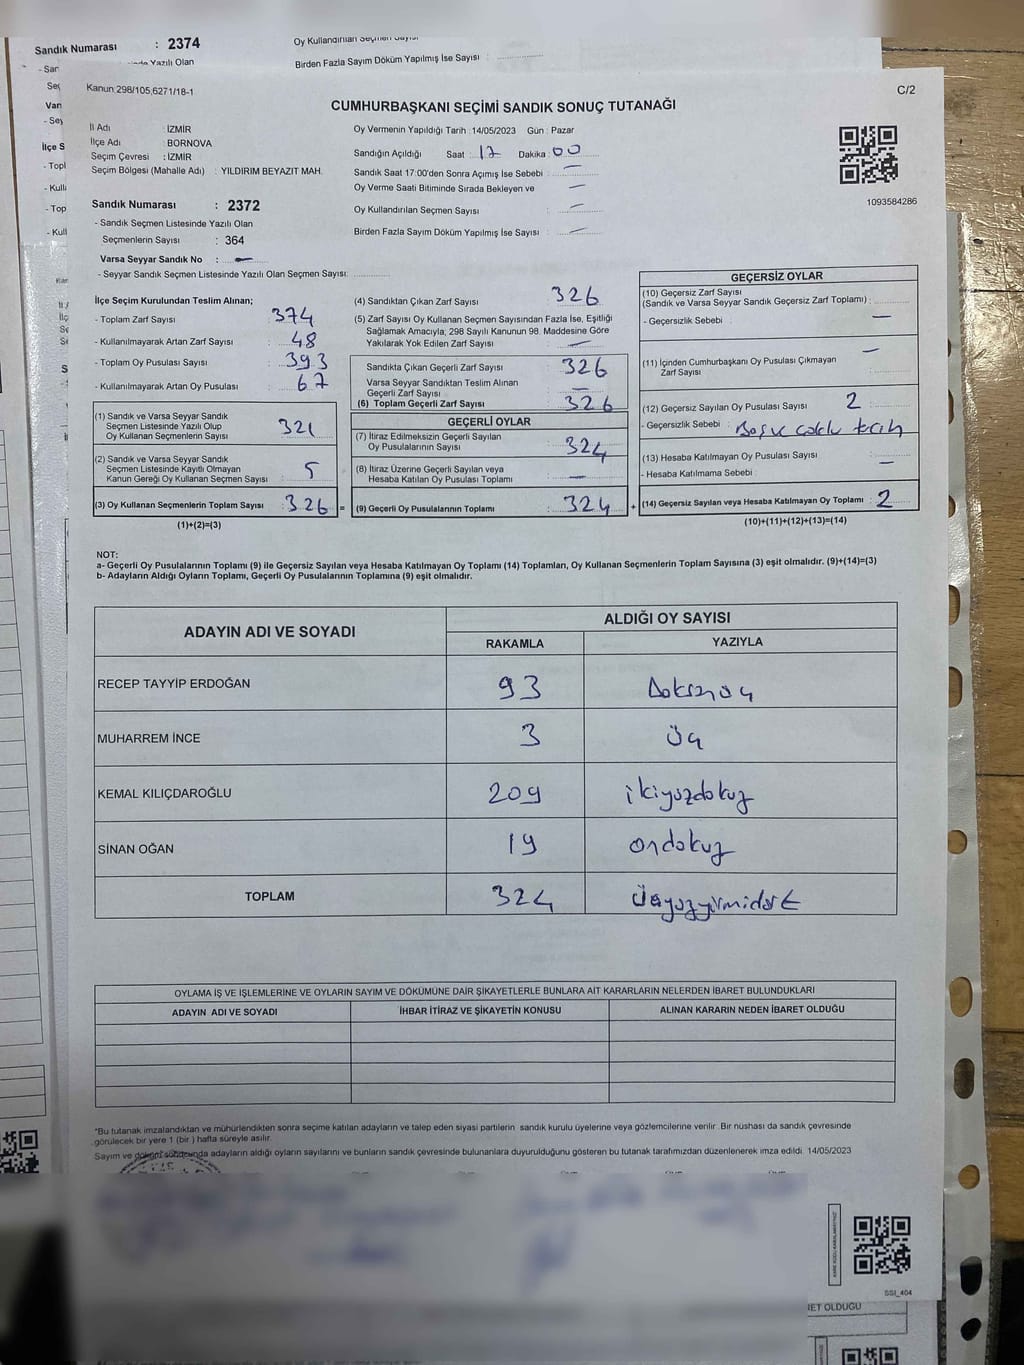 Sandık Numarası : 2374
Birden Fazla Sayım Döküm Yapılmış İse Sayısı :
Kanun 298/105,6271/18-1
C/2
CUMHURBAŞKANI SEÇİMİ SANDIK SONUÇ TUTANAĞI
İl Adı : İZMİR
İlçe Adı : BORNOVA
Seçim Çevresi : İZMİR
Seçim Bölgesi (Mahalle Adı) : YILDIRIM BEYAZIT MAH.
Oy Vermenin Yapıldığı Tarih :14/05/2023 Gün : Pazar
Sandığın Açıldığı Saat : 17 Dakika : 00
Sandık Saat 17:00'den Sonra Açımış İse Sebebi : —
Oy Verme Saati Bitiminde Sırada Bekleyen ve —
Oy Kullandırılan Seçmen Sayısı : —
Birden Fazla Sayım Döküm Yapılmış İse Sayısı : —
1093584286
Sandık Numarası : 2372
- Sandık Seçmen Listesinde Yazılı Olan
Seçmenlerin Sayısı : 364
Varsa Seyyar Sandık No : —
- Seyyar Sandık Seçmen Listesinde Yazılı Olan Seçmen Sayısı:
İlçe Seçim Kurulundan Teslim Alınan;
- Toplam Zarf Sayısı : 374
- Kullanılmayarak Artan Zarf Sayısı : 48
- Toplam Oy Pusulası Sayısı : 393
- Kullanılmayarak Artan Oy Pusulası : 67
(1) Sandık ve Varsa Seyyar Sandık
Seçmen Listesinde Yazılı Olup
Oy Kullanan Seçmenlerin Sayısı 321
(2) Sandık ve Varsa Seyyar Sandık
Seçmen Listesinde Kayıtlı Olmayan
Kanun Gereği Oy Kullanan Seçmen Sayısı : 5
(3) Oy Kullanan Seçmenlerin Toplam Sayısı : 326 =
(1)+(2)=(3)
(4) Sandıktan Çıkan Zarf Sayısı : 326
(5) Zarf Sayısı Oy Kullanan Seçmen Sayısından Fazla İse, Eşitliği
Sağlamak Amacıyla; 298 Sayılı Kanunun 98. Maddesine Göre
Yakılarak Yok Edilen Zarf Sayısı : —
Sandıkta Çıkan Geçerli Zarf Sayısı : 326
Varsa Seyyar Sandıktan Teslim Alınan
Geçerli Zarf Sayısı : —
(6) Toplam Geçerli Zarf Sayısı : 326
GEÇERLİ OYLAR
(7) İtiraz Edilmeksizin Geçerli Sayılan
Oy Pusulalarının Sayısı : 324
(8) İtiraz Üzerine Geçerli Sayılan veya
Hesaba Katılan Oy Pusulası Toplamı : —
(9) Geçerli Oy Pusulalarının Toplamı : 324 +
GEÇERSİZ OYLAR
(10) Geçersiz Zarf Sayısı
(Sandık ve Varsa Seyyar Sandık Geçersiz Zarf Toplamı) :
- Geçersizlik Sebebi : —
(11) İçinden Cumhurbaşkanı Oy Pusulası Çıkmayan —
Zarf Sayısı :
(12) Geçersiz Sayılan Oy Pusulası Sayısı : 2
- Geçersizlik Sebebi :
(13) Hesaba Katılmayan Oy Pusulası Sayısı : —
- Hesaba Katılmama Sebebi :
(14) Geçersiz Sayılan veya Hesaba Katılmayan Oy Toplamı : 2
(10)+(11)+(12)+(13)=(14)
NOT:
a- Geçerli Oy Pusulalarının Toplamı (9) ile Geçersiz Sayılan veya Hesaba Katılmayan Oy Toplamı (14) Toplamları, Oy Kullanan Seçmenlerin Toplam Sayısına (3) eşit olmalıdır. (9)+(14)=(3)
b- Adayların Aldığı Oyların Toplamı, Geçerli Oy Pusulalarının Toplamına (9) eşit olmalıdır.
ADAYIN ADI VE SOYADI
ALDIĞI OY SAYISI
RAKAMLA YAZIYLA
RECEP TAYYİP ERDOĞAN 93 Doksanüç
MUHARREM İNCE 3 Üç
KEMAL KILIÇDAROĞLU 209 ikiyüzdokuz
SİNAN OĞAN 19 ondokuz
TOPLAM 324 Üçyüzyirmidört
OYLAMA İŞ VE İŞLEMLERİNE VE OYLARIN SAYIM VE DÖKÜMÜNE DAİR ŞİKAYETLERLE BUNLARA AİT KARARLARIN NELERDEN İBARET BULUNDUKLARI
ADAYIN ADI VE SOYADI İHBAR İTİRAZ VE ŞİKAYETİN KONUSU ALINAN KARARIN NEDEN İBARET OLDUĞU
*Bu tutanak imzalandıktan ve mühürlendikten sonra seçime katılan adayların ve talep eden siyasi partilerin sandık kurulu üyelerine veya gözlemcilerine verilir. Bir nüshası da sandık çevresinde
görülecek bir yere 1 (bir ) hafta süreyle asılır.
Sayım ve döküm sonucunda adayların aldığı oyların sayılarını ve bunların sandık çevresinde bulunanlara duyurulduğunu gösteren bu tutanak tarafımızdan düzenlenerek imza edildi. 14/05/2023
SSI_404